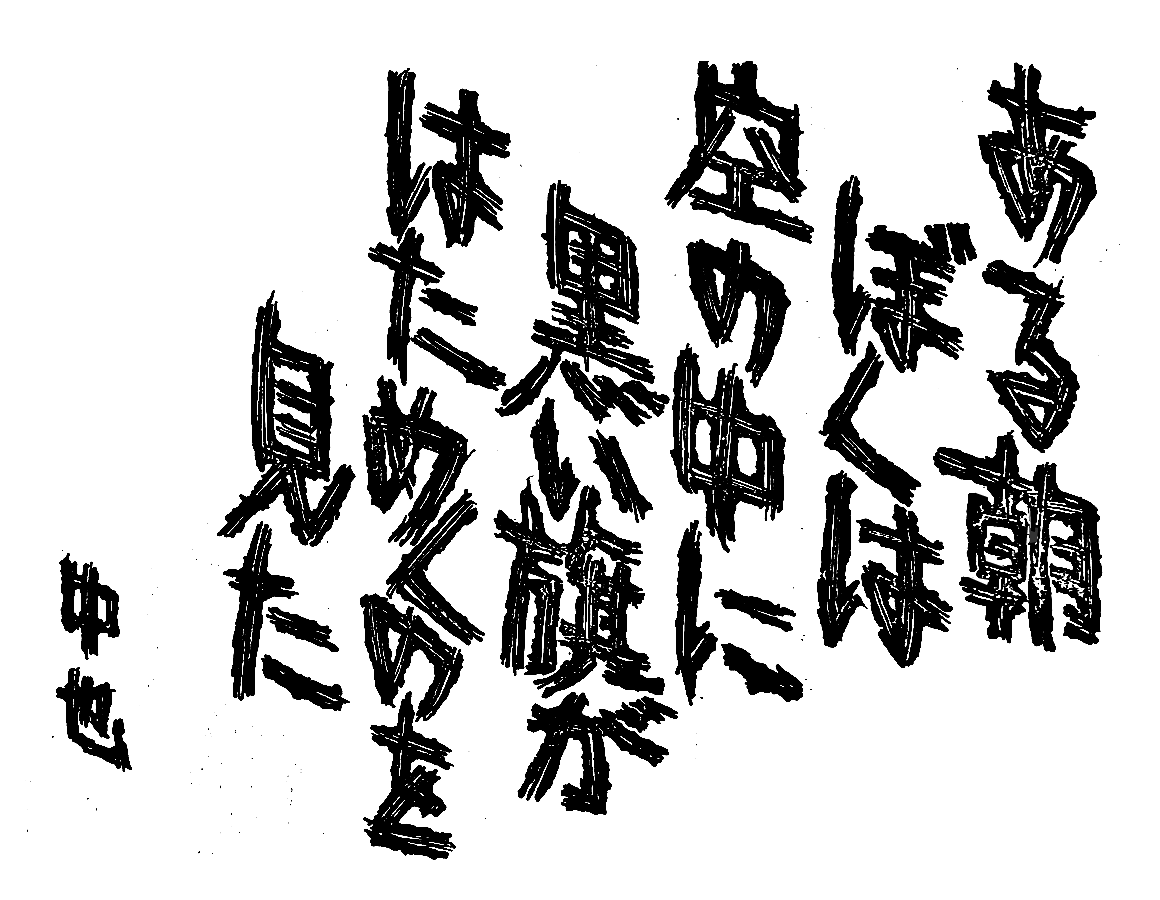 ある朝
ぼくは
空の中に
黒い旗が
はためくのを
見た
中也